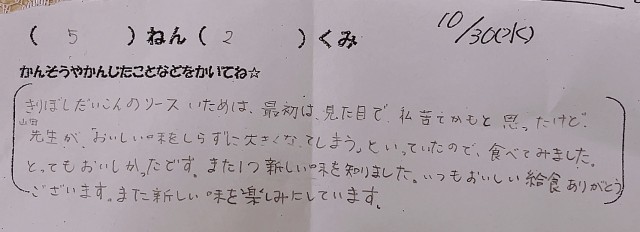 ( 5 ) ねん ( 2 ) くみ 10/30(水)
かんそうやかんじたことなどをかいてね☆
きりぼしだいこんのソースいためは、最初は、見た目で、私苦手かもと思ったけど、
山田先生が、「おいしい味をしらずに大きくなってしまう。」といっていたので、食べてみました。
とってもおいしかったです。また1つ新しい味を知りました。いつもおいしい給食ありがとう
ございます。また新しい味を楽しみにしています。